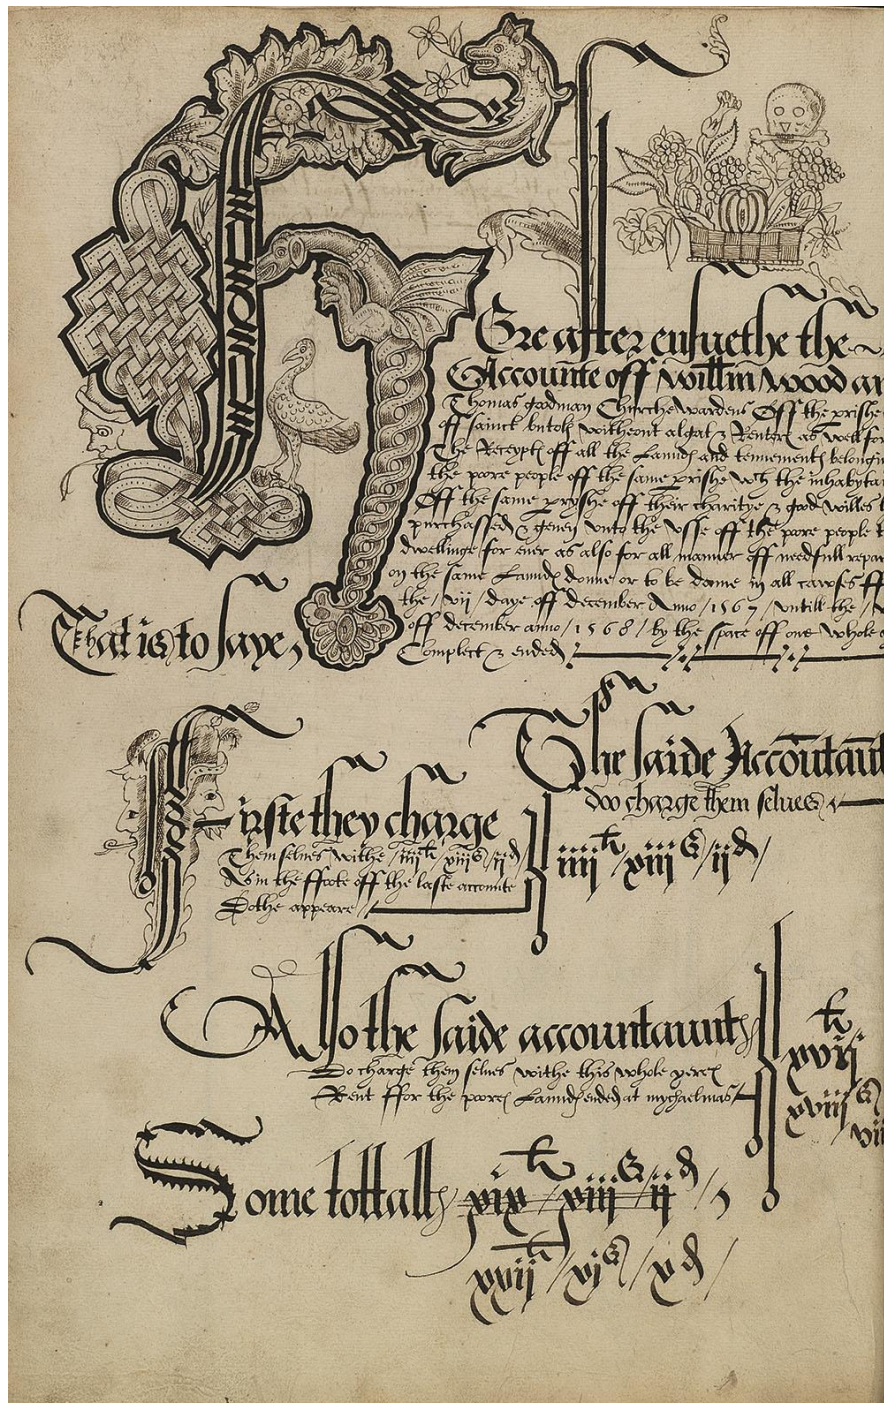 HEre after ensuethe the
Accounte off willm wood an
Thomas goodman Churche wardens Off the prishe
off sainct butolk witheout algat & Renters as well for
The Receyptes off all the Landes and tennementes belongin
the poore people off the same prishe wth the inhabytan
Off the same pryshe off their charitye & good willes
purchassed & geven unto the Usse off the pore people
dwellinge for ever as also for all manner off needfull repar
on the same Landes donne or to be donne in all cawses
the / vij / daye off december Anno / 1567 / untill the /
off december anno / 1568 / by the space off one whole
Complect & ended
That is to saye,
The saide Accountaunt
doo charge them selves
Firste they charge
Themselves withe / iiij li / xiiij s / ij d
As in the ffoote off the laste accomte
Dothe appeare
iiij li / xiij s / ij d /
Also the saide accountauntes
Do charge them selves withe this whole yeres
Rent ffor the poores Landes ended at mychaelmas
li
xvij
xviij s
vii
Some tottall xix li / xiij s / ij d /
xxij li / xj s / x d /